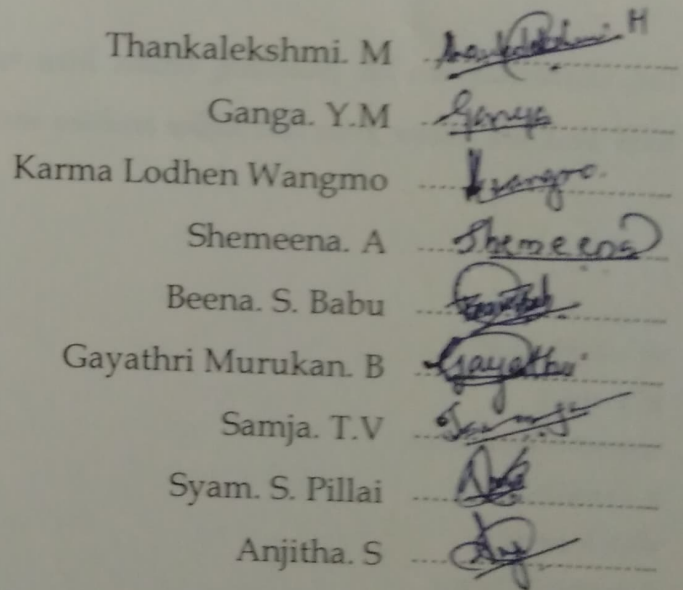 Thankalekshmi. M Thankalekshmi M
Ganga. Y.M Ganga
Karma Lodhen Wangmo Kwangmo.
Shemeena. A Shemeena
Beena. S. Babu
Gayathri Murukan. B Gayathri
Samja. T.V
Syam. S. Pillai
Anjitha. S